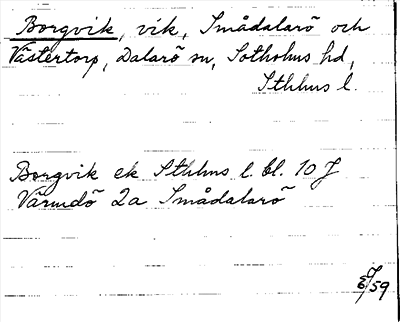 Borgvik, vik, Smådalarö och
Västertorp, Dalarö sn, Sotholms hd,
Sthlms l.
Borgvik ek Sthlms l. bl. 10 J
Värmdö 2a Smådalarö
/59